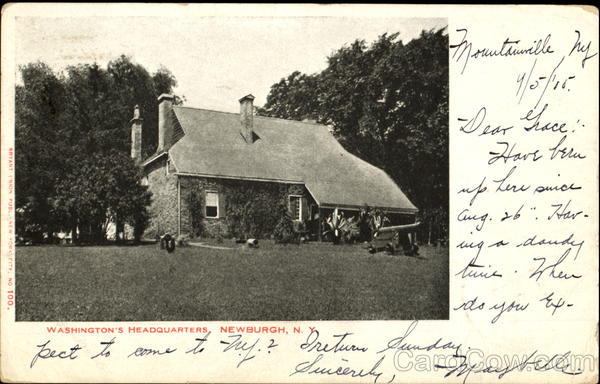 Mountainville, Ny
9/5/'05.
Dear Grace:-
Have been
up here since
Aug. 26". Hav-
ing a dandy
time. When
do you Ex-
pect to come to Ny.? I return Sunday.
Sincerely, Maybelle.
WASHINGTON'S HEADQUARTERS, NEWBURGH, N. Y.
BRYANT UNION PUB., NEW YORK CITY, NO 100.
CardCow.com